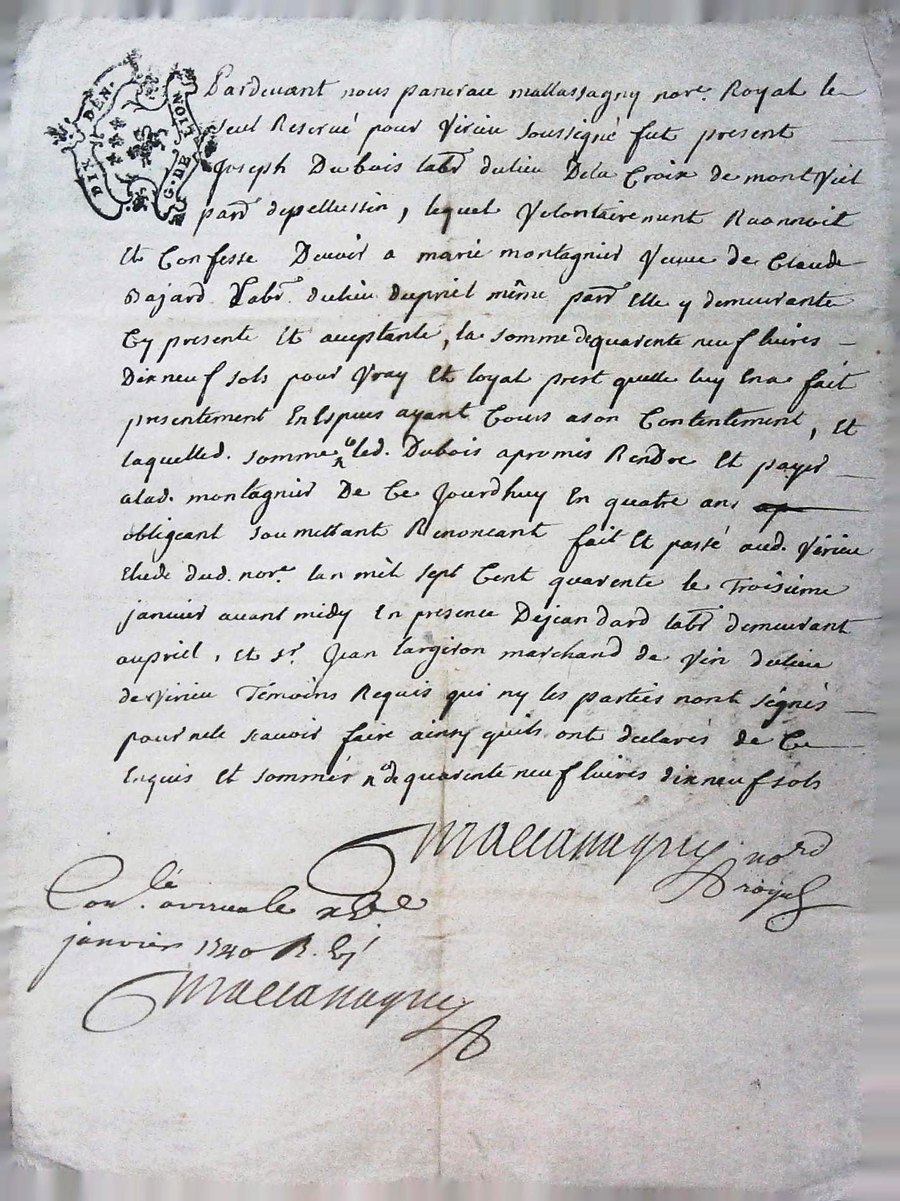 DIX DEN.
G. DE
NOIT
Pardevant nous pancrace mallassagny nore. Royal le
seul Reservé pour Virieu soussigné fut present
Joseph Dubois labr. dulieu Dela Croix de montViel
parr. depellussin, lequel Volontairement Reconnoit
Et Confesse Devoir a marie montagnier Veuve de Claude
Bajard Labr. dulieu dupriel même parr. Elle y demeurante
Cy presente Et acceptante, la somme dequarente neuf livres
Dixneuf sols pour Vray Et loyal prest quelle luy Ena fait
presentement En Especes ayant Cours ason Contentement, Et
laquelled. somme led. Dubois apromis Rendre Et payer
alad. montagnier De Ce Jourdhuy En quatre ans
obligeant soumettant Renoncant fait Et passé aud. Virieu
Etude dud. nore. lan mil sept Cent quarente le Troisieme
janvier avant midy En presence Dejean dard labr. demeurant
aupriel, Et sr. Jean largeron marchand de Vin dulieu
deVirieu Témoins Requis qui ny les parties nont ségnés
pour ne le scavoir faire ainsy quils ont declarés de Ce
Enquis Et sommér n de quarente neuf livres dixneuf sols
Mallassagny nore
royal
Conlé. a virieu le
janvier 1740 R.
Mallassagny